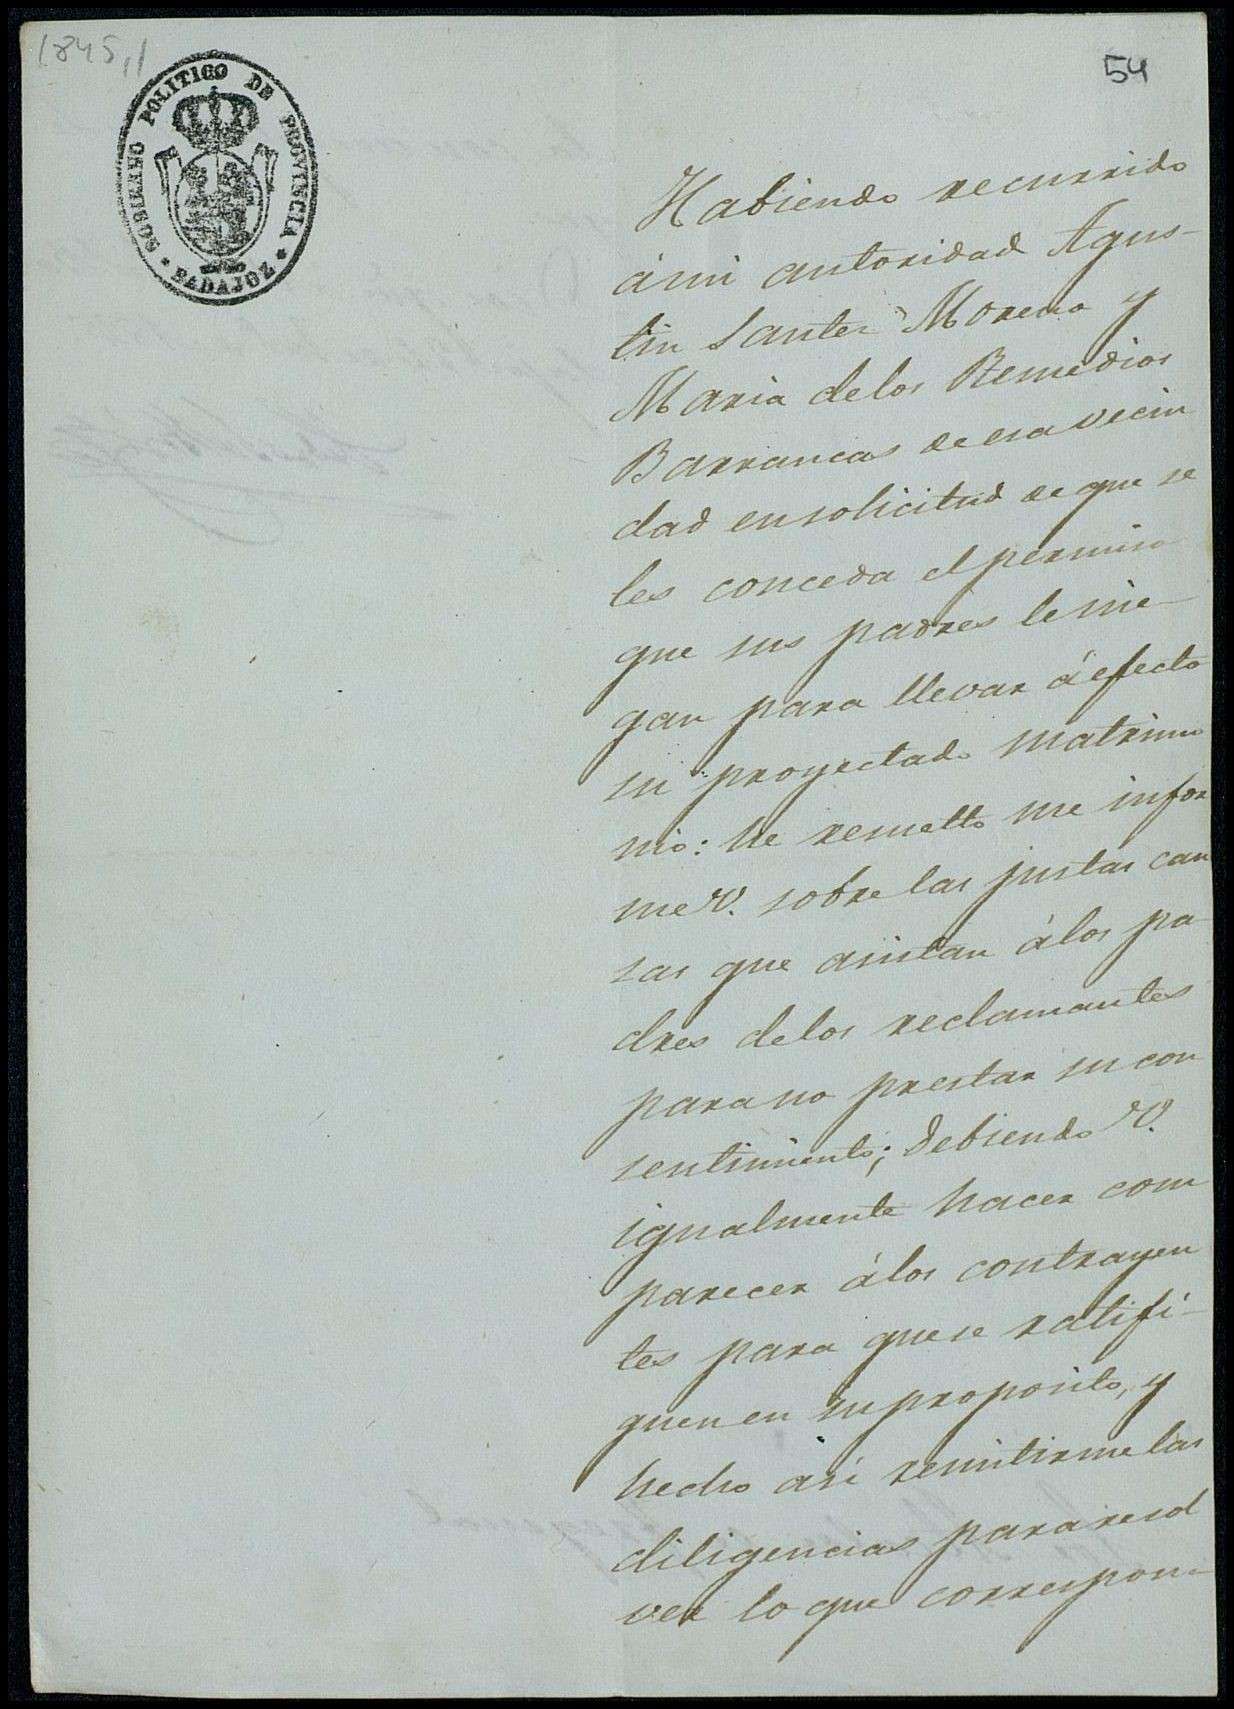 1845,,
54
GOBIERNO POLITICO DE PROVINCIA
* BADAJOZ *
Habiendo recurrido
á mi autoridad Agus-
tin Santos Moreno y
Maria de los Remedios
Barrancas de esa vecin
dad en solicitud de que se
les conceda el permiso
que sus padres le nie-
gan para llevar á efecto
su proyectado matrimo
nio: he resuelto me infor
me V. sobre las justas cau
sas que asistan á los pa-
dres de los reclamantes
para no prestar su con
sentimiento; debiendo V.
igualmente hacer com
parecer á los contrayen
tes para que se ratifi-
quen en su proposito, y
hecho asi remitirme las
diligencias para resol
ver lo que correspon-